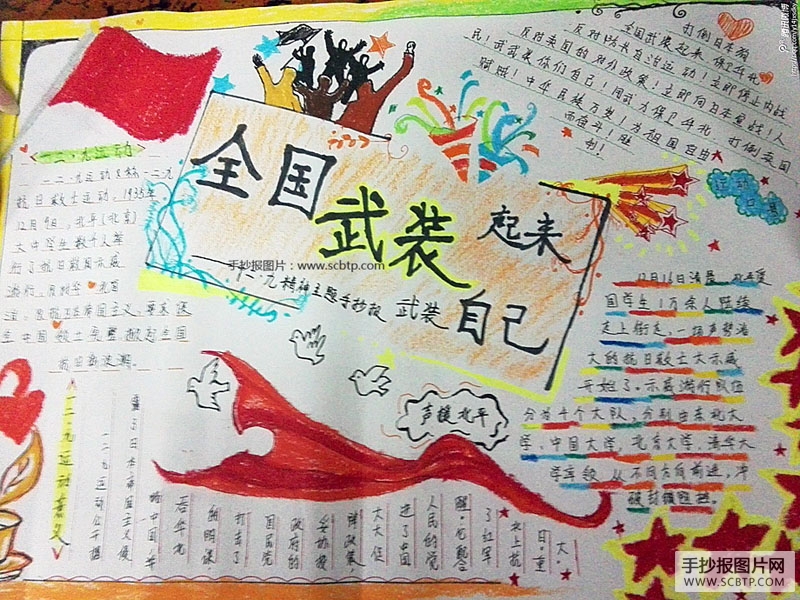 打倒日本狗
全国武装起来 保卫华北
反对防共自治运动！立即停止内战
反对卖国的对外政策！立即向日本宣战！人
民！武装你们自己！用武力保卫华北 打倒卖国
贼贼！中华民族万岁！为祖国自由
而奋斗！胜
利！
全国
武装起来
武装自己
一二·九精神主题手抄报
手抄报图片：www.scbtp.com
一二·九运动
一二·九运动又称一二九
抗日救亡运动，1935年
12月9日，北平(北京)
大中学生数千人举
行了抗日救国示威
游行，反对华北自
治，反抗日本帝国主义，要求保
全中国领土完整，掀起全国
抗日救国
运动
口号
12月16日清晨
国学生1万余人陆续
走上街头，一场声势浩
大的抗日救亡大示威
开始了。示威游行队伍
分为4个大队，分别由东北大
学、中国大学、北京大学、清华大
学率领 从不同方向前进，冲
破封锁
声援北平
一二·九运动意义
一二九运动公开揭
露了日本帝国主义侵
吞华北
打击了
国民党
政府的
妥协投
降政策，
大大促
进了中国
人民的觉
醒。它配合
了红军
北上抗
日
手抄报图片网
WWW.SCBTP.COM
腾讯微博